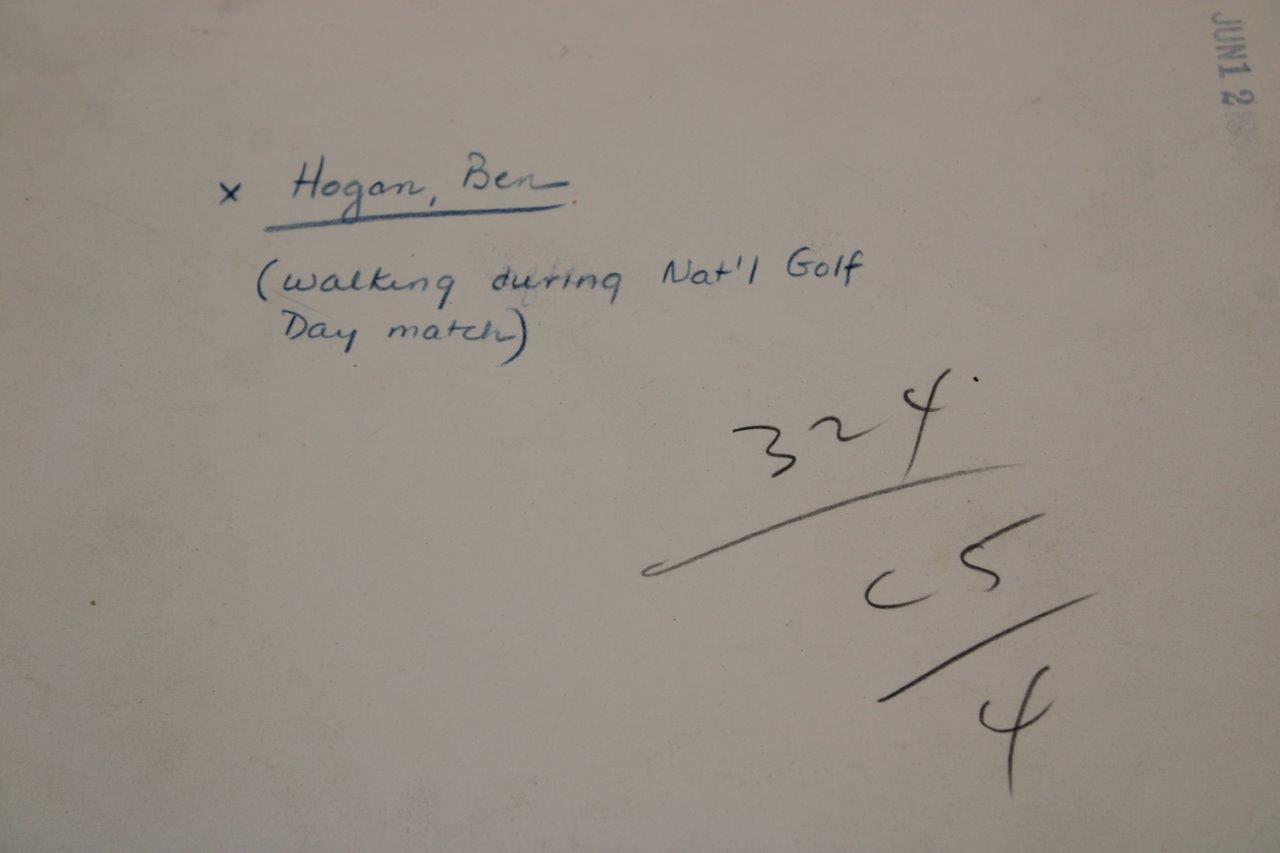 JUN 12
x Hogan, Ben
(walking during Nat'l Golf
Day match)
324
c5
4